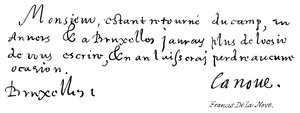 Monsieur, estant retourné du camp, en
Anvers & a Bruxelles jauray plus de loisir
de vous escrire, & n'en laisseray perdre aucune
ocasion.
Bruxelles
Lanoue.
Francis. De la Nove.